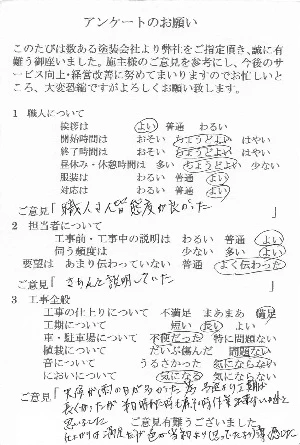 アンケートのお願い
このたびは数ある塗装会社より弊社をご指定頂き、誠に有
難う御座いました。施主様のご意見を参考にし、今後のサ
ービス向上・経営改善に努めてまいりますのでお忙しいと
ころ、大変恐縮ですがよろしくお願い致します。
1 職人について
挨拶は よい 普通 わるい
開始時間は おそい ちょうどよい はやい
終了時間は おそい ちょうどよい はやい
昼休み・休憩時間は 多い ちょうどよい 少ない
服装は わるい 普通 よい
対応は わるい 普通 よい
ご意見「職人さん皆態度が良かった」
2 担当者について
工事前・工事中の説明は わるい 普通 よい
伺う頻度は 少ない 多い よい
要望は あまり伝わっていない 普通 よく伝わった
ご意見「きちんと説明していた」
3 工事全般
工事の仕上りについて 不満足 まあまあ 満足
工期について 短い 長い よい
車・駐車場について 不便だった 特に問題ない
植栽について だいぶ傷んだ 問題ない
音について うるさかった 気にならない
においについて 気になる 気にならない
ご意見「天候が雨の日が多かった為
長くなったが
思いました
ご意見有難うございました。